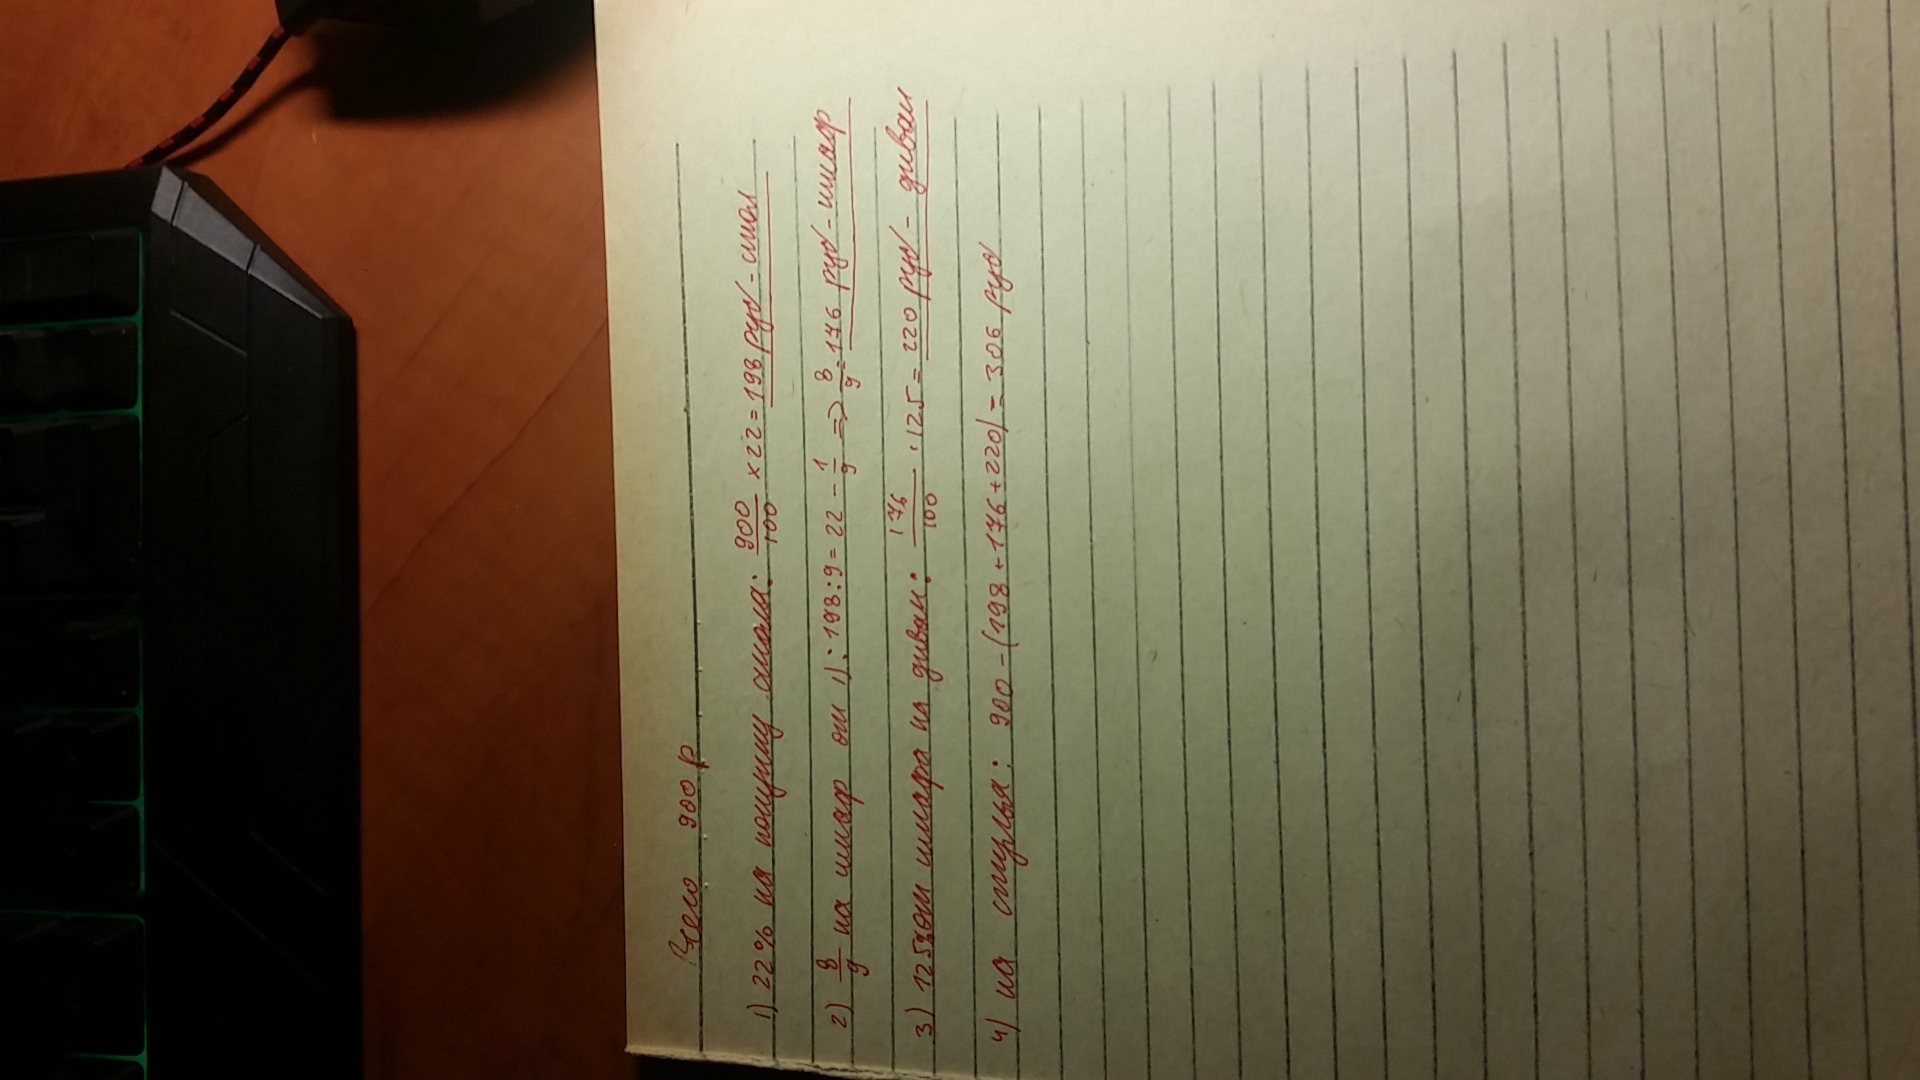 Всего 900 р
1) 22% на покупку стола: 900/100 x 22 = 198 руб - стол
2) 8/9 на шкаф от 1): 198 : 9 = 22 - 1/9 => 8/9 = 176 руб - шкаф
3) 125% от шкафа на диван: 176/100 · 125 = 220 руб - диван
4) на стулья: 900 - (198 + 176 + 220) = 306 руб